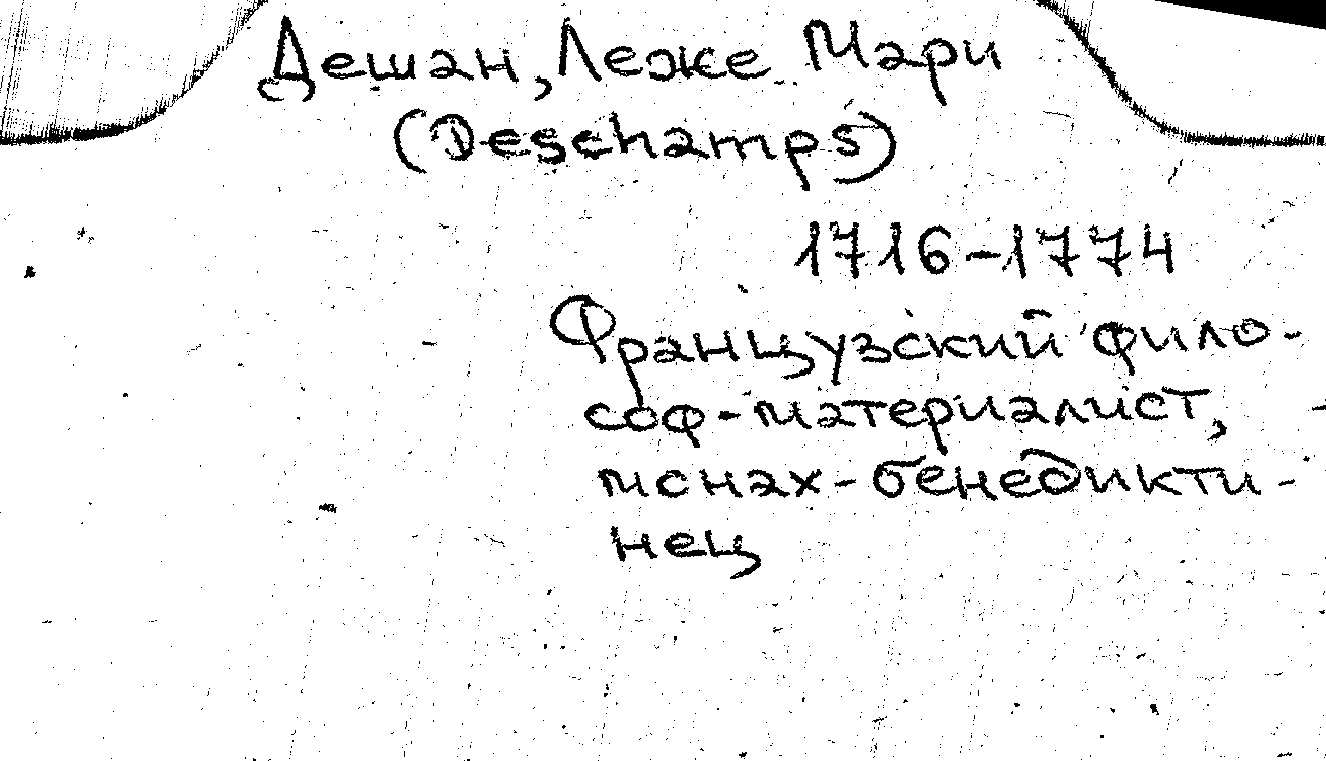 Дешан, Леже Мари
(Deschamps)
1716-1774
Французский фило-
соф-материалист,
монах-бенедикти-
нец